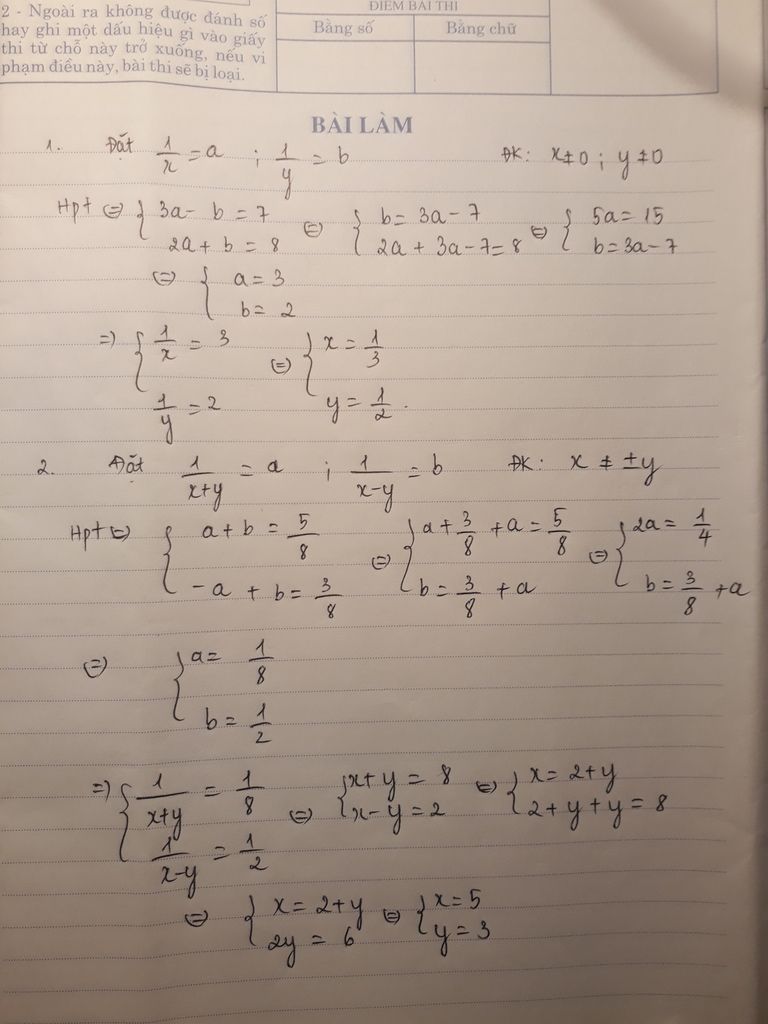 2 - Ngoài ra không được đánh số
hay ghi một dấu hiệu gì vào giấy
thi từ chỗ này trở xuống, nếu vi
phạm điều này, bài thi sẽ bị loại.
ĐIỂM BÀI THI
Bằng số Bằng chữ
BÀI LÀM
1. Đặt 1/x = a ; 1/y = b ĐK: x ≠ 0 ; y ≠ 0
Hpt ⇔ { 3a - b = 7 ; 2a + b = 8 ⇔ { b = 3a - 7 ; 2a + 3a - 7 = 8 ⇔ { 5a = 15 ; b = 3a - 7
⇔ { a = 3 ; b = 2
⇒ { 1/x = 3 ; 1/y = 2 ⇔ { x = 1/3 ; y = 1/2 .
2. Đặt 1/(x+y) = a ; 1/(x-y) = b ĐK: x ≠ ±y
Hpt ⇔ { a + b = 5/8 ; -a + b = 3/8 ⇔ { a + 3/8 + a = 5/8 ; b = 3/8 + a ⇔ { 2a = 1/4 ; b = 3/8 + a
⇔ { a = 1/8 ; b = 1/2
⇒ { 1/(x+y) = 1/8 ; 1/(x-y) = 1/2 ⇔ { x + y = 8 ; x - y = 2 ⇔ { x = 2 + y ; 2 + y + y = 8
⇔ { x = 2 + y ; 2y = 6 ⇔ { x = 5 ; y = 3